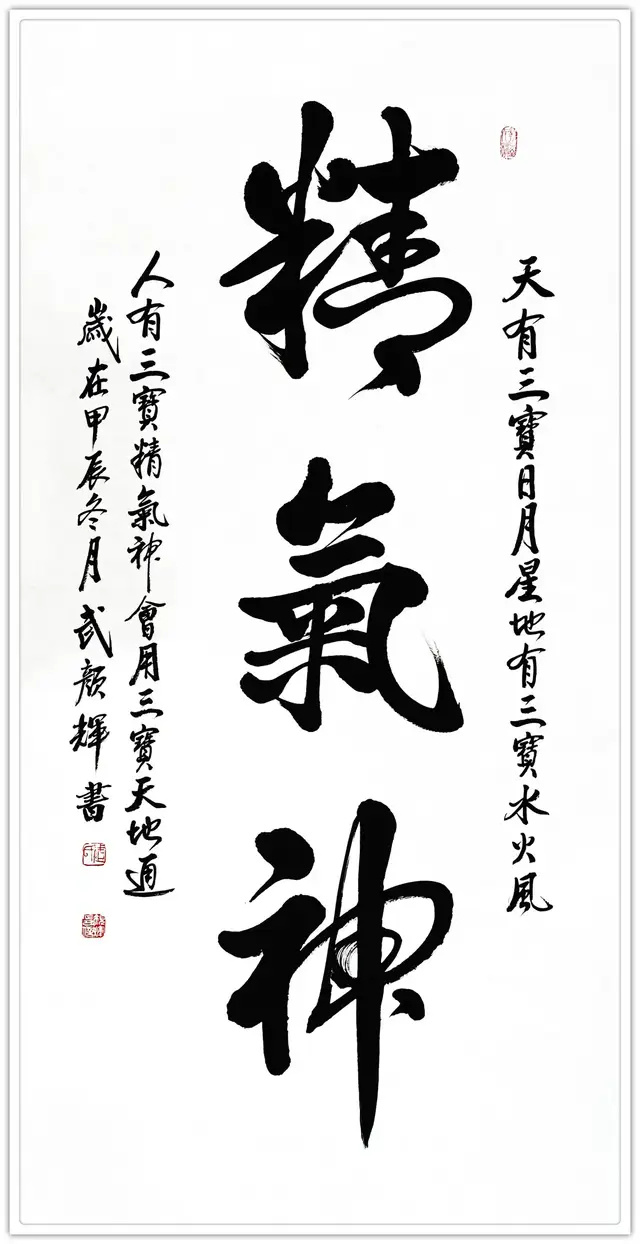 天有三寶日月星地有三寶水火風
精氣神
人有三寶精氣神會用三寶天地通
歲在甲辰冬月武顏輝書